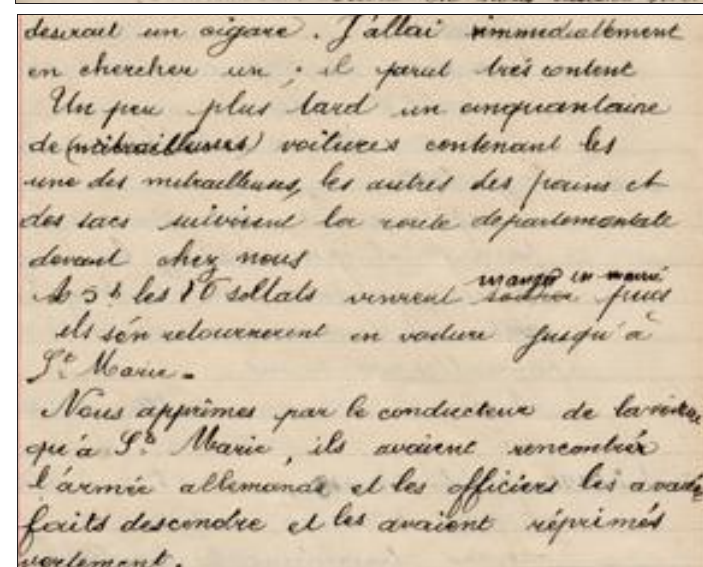 desirait un cigare. J'allai immediatement
en chercher un ; il parut très content
Un peu plus tard un cinquantaine
de (mitrailluses) voitures contenant les
une des mitrailleuses, les autres des pains et
des sacs suivirent la route departementale
devant chez nous
A 5h les 10 soltats vinrent manger puis
ils s'én retournerent en voiture jusqu'à
St Marie.
Nous apprimes par le conducteur de la voiture
qu'à Ste Marie, ils avaient rencontrér
l'armée allemande et les officiers les avaient
faits descendre et les avaient réprimés
vertement.